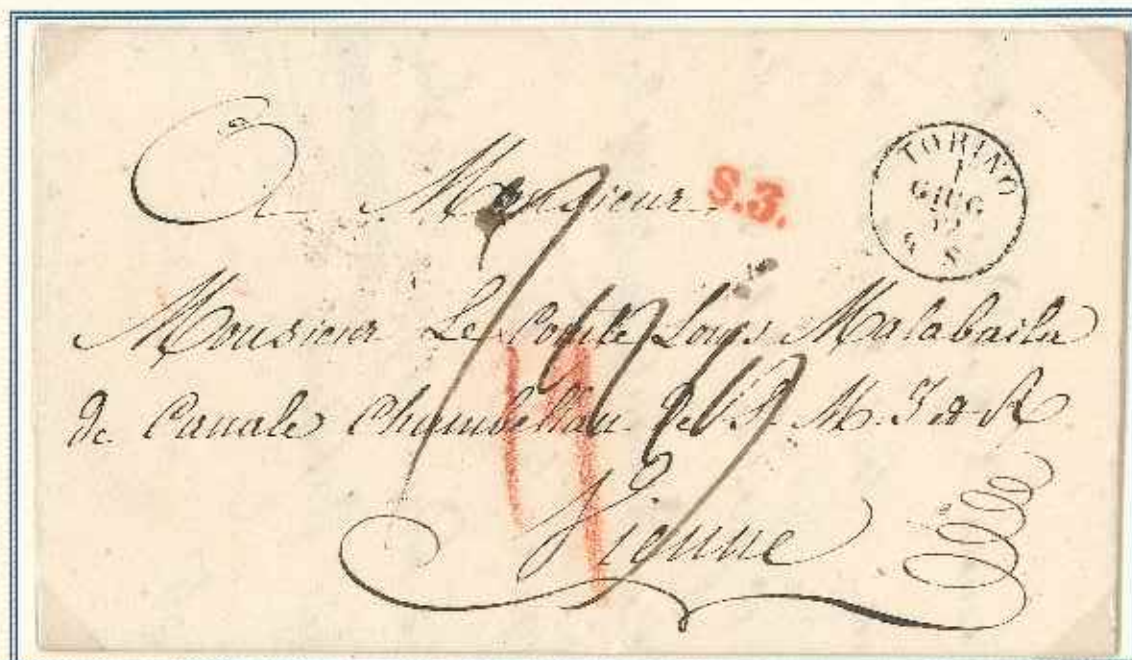 A Monsieur
S.3.
TORINO
1
GIUG
S
Monsieur Le Comte Louis Malabaila
de Canale Chambellan de S. M. I & R
Vienne